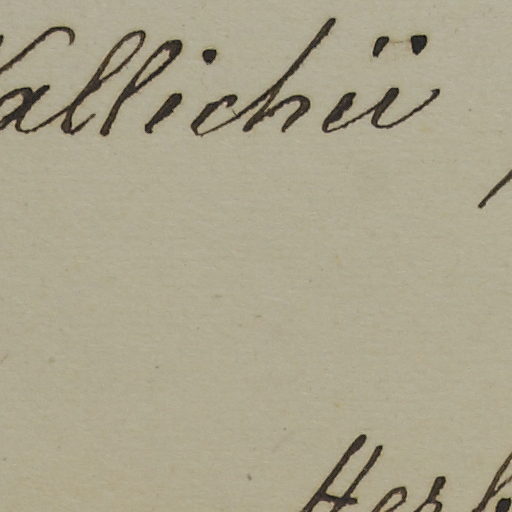 Wallichii
Herb